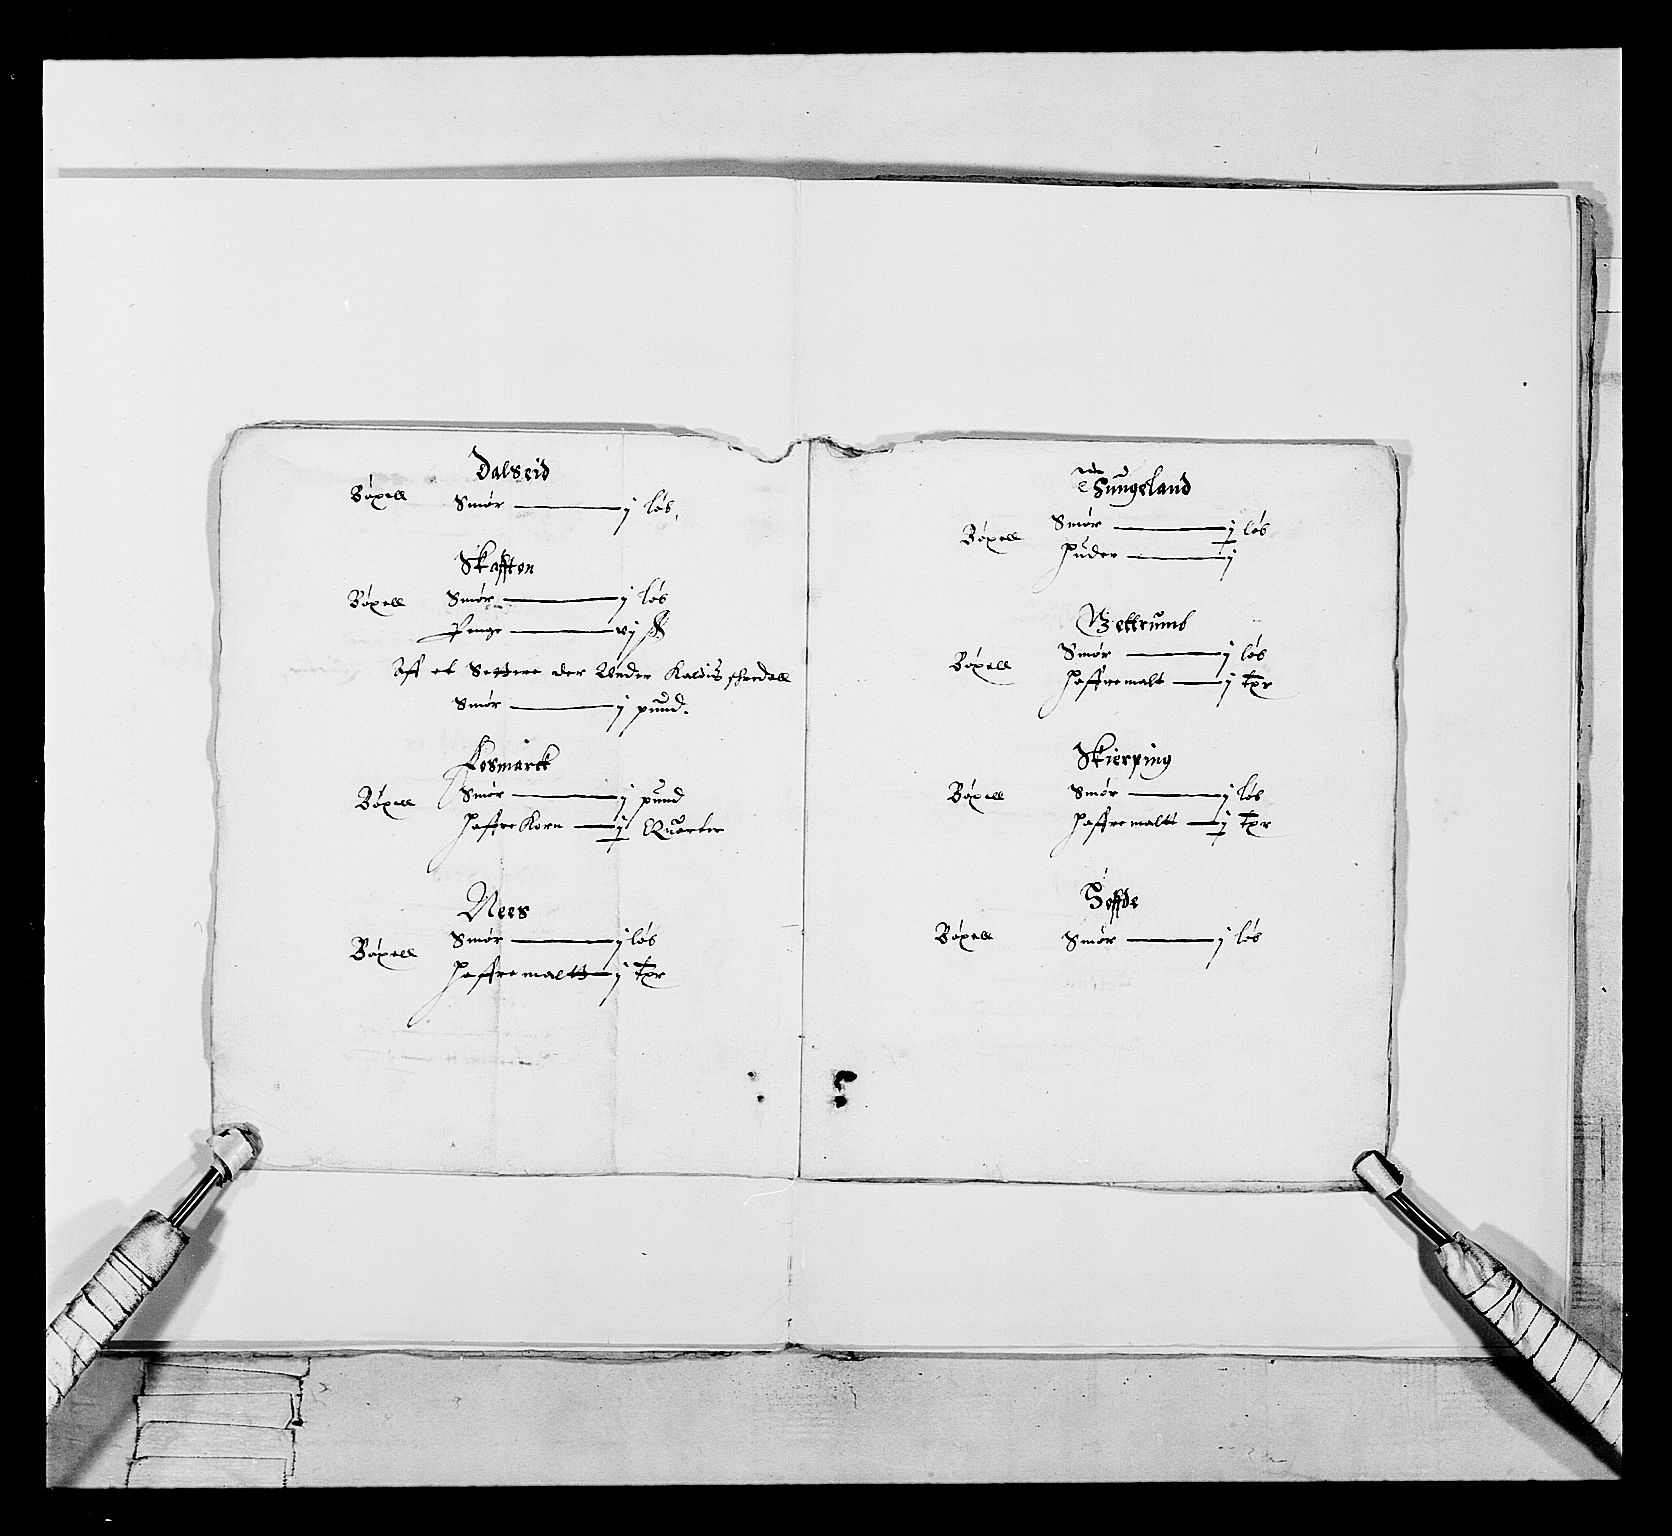 Dalseid
Bøxell Smør — j løb.
Skafften
Bøxell Smør — j løb
Penge — vj ß
Aff et Settre der Under Kaldis
Smør — j pund.
Fosmarck
Bøxell Smør — j pund
Haffre Korn — j Quarter
Nees
Bøxell Smør — j løb
Haffre maltt — j tpr
Hungeland
Bøxell Smør — j løb
Huder — j
Vettrumb
Bøxell Smør — j løb
Haffremalt — j tpr
Skierping
Bøxell Smør — j løb
Haffremaltt — j tpr
Bøxell Smør — j løb